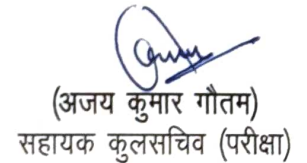 (अजय कुमार गौतम)
सहायक कुलसचिव (परीक्षा)